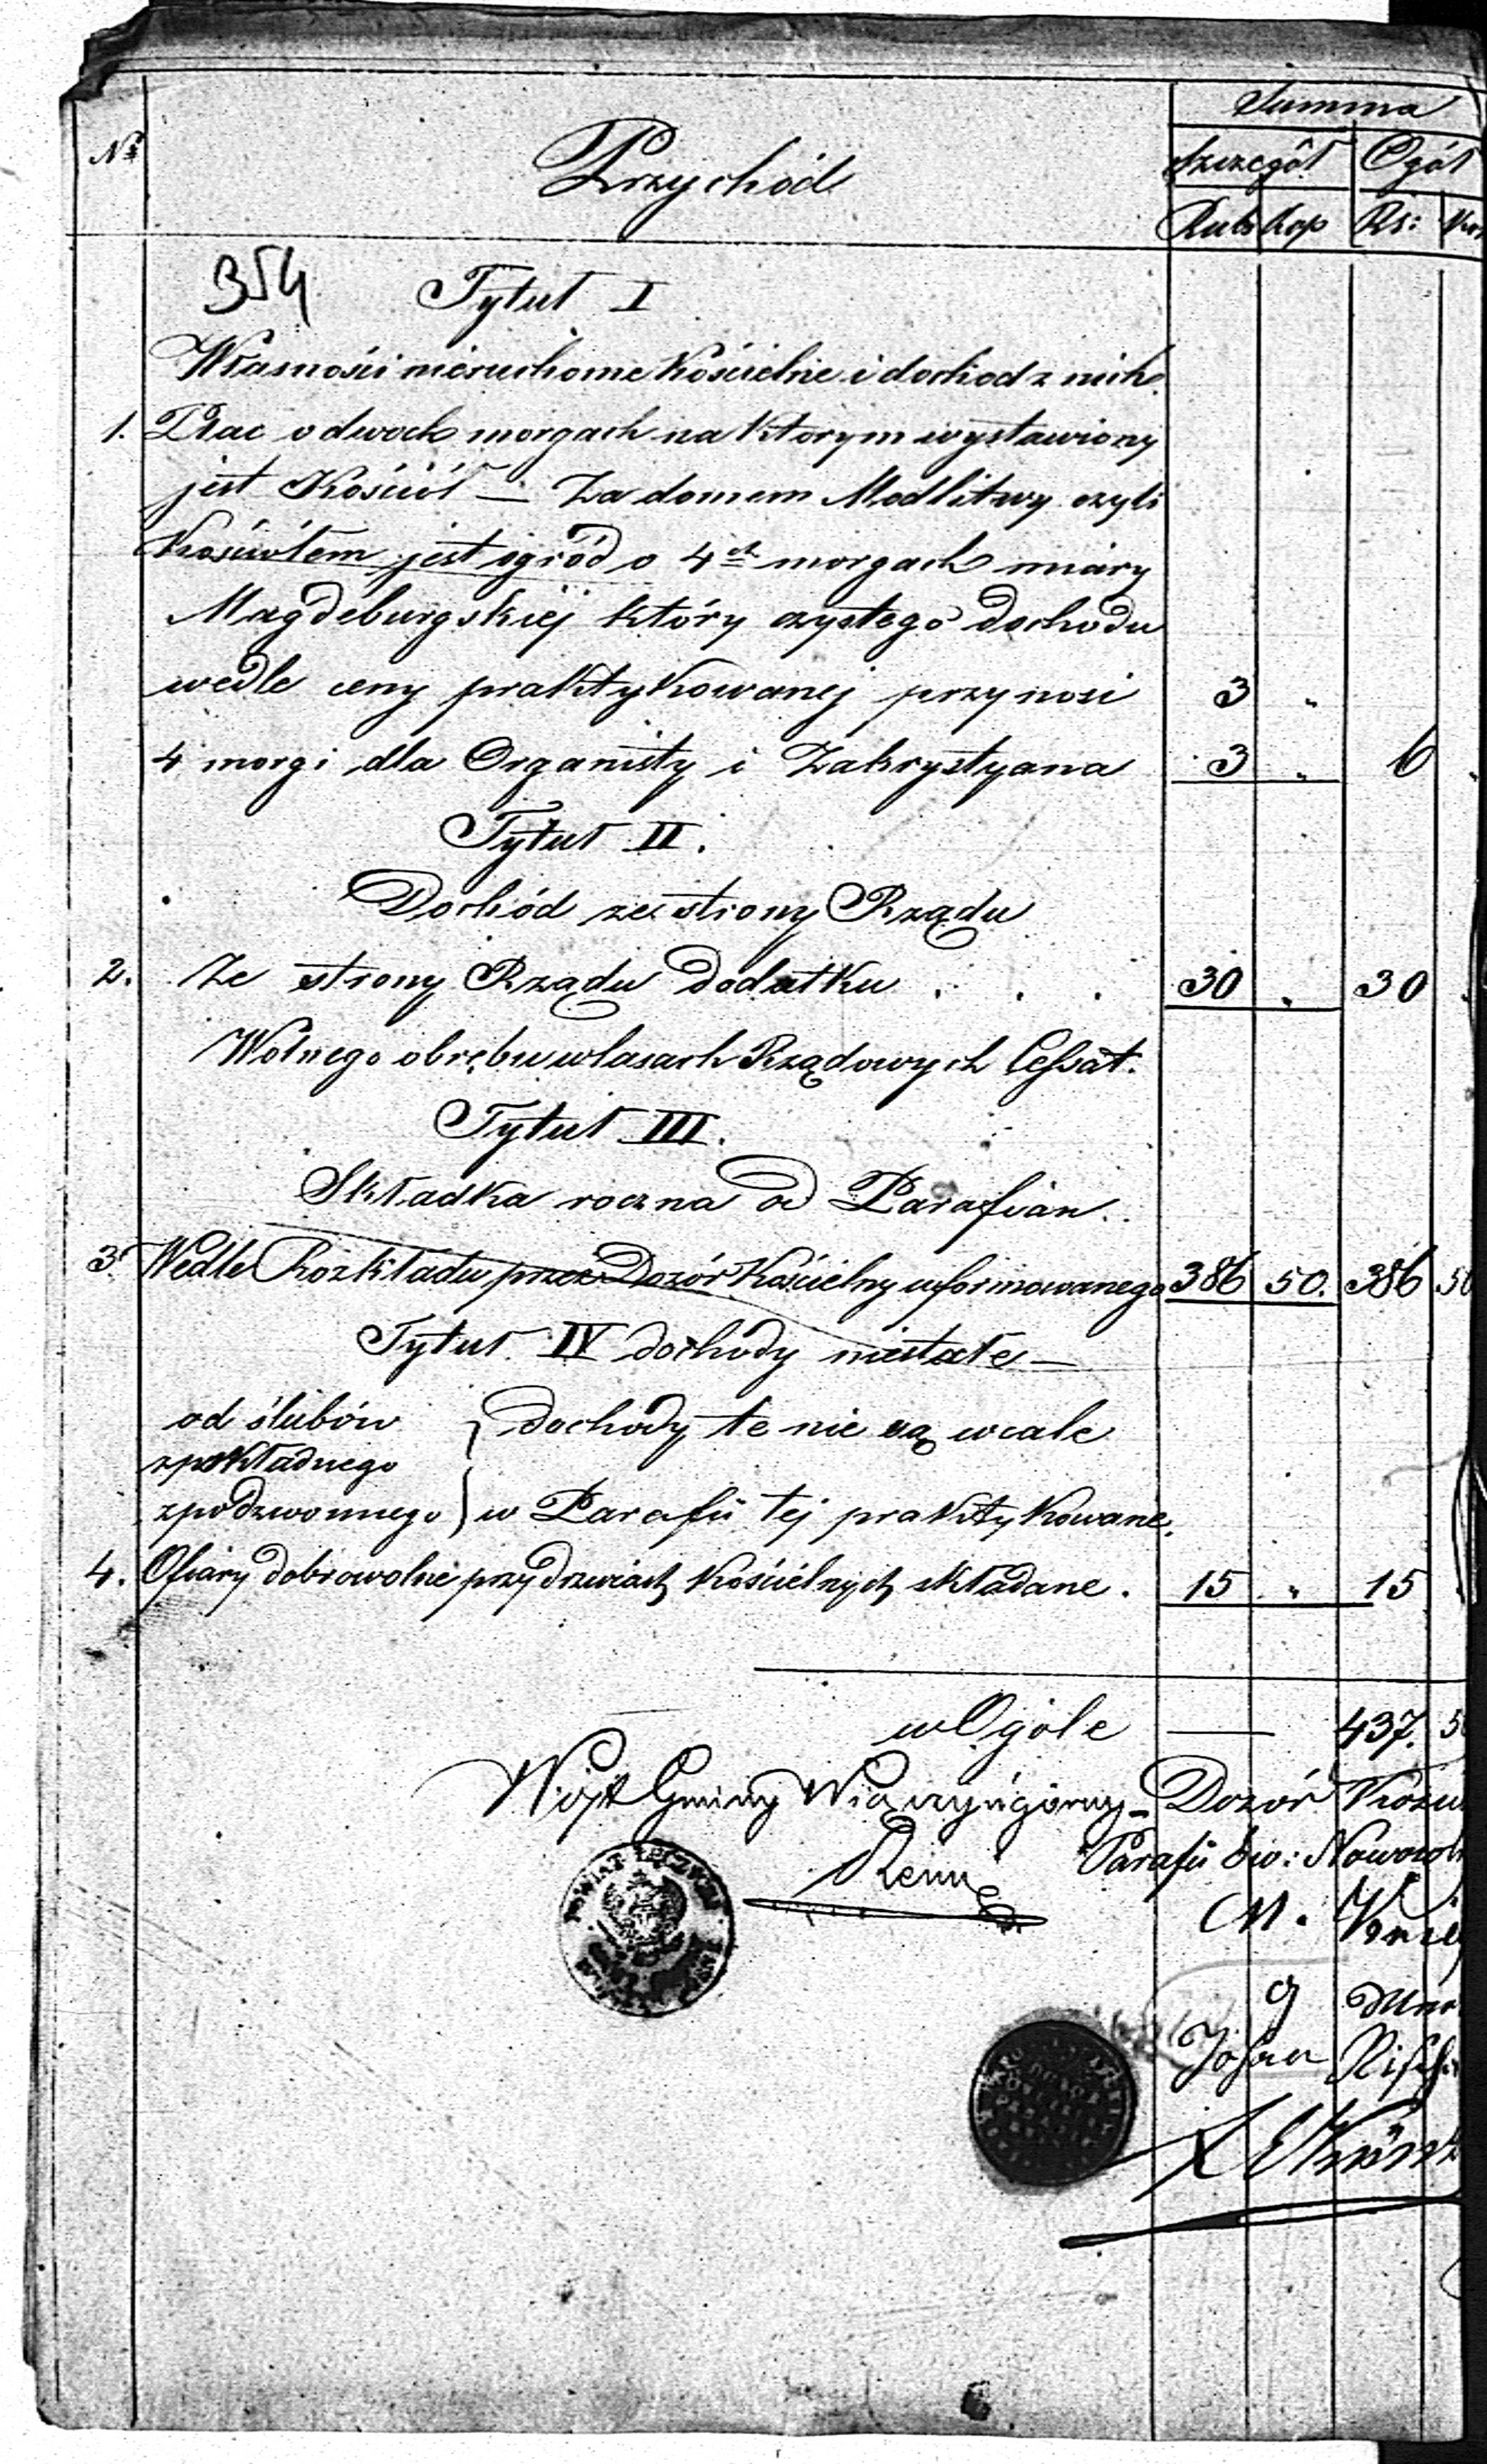 Summa
№ Przychód Szczegół Ogół
Rub Kop Rs: Kop
354 Tytuł I
Własności nieruchome Kościelne i dochod z nich
1. Plac o dwoch morgach na Ktorym wystawiony
jest Kościół — Za domem Modlitwy czyli
Kościołem jest ogród o 4ch morgach miary
Magdeburgskiej który czystego dochodu
wedle ceny praktykowanej przynosi 3 "
4 morgi dla Organisty i Zakrystyana 3 " 6 "
Tytuł II.
Dochód ze strony Rządu
2. Ze strony Rządu dodatku . . . 30 " 30
Wolnego obrębu w lasach Rządowych Cessat.
Tytuł III.
Składka roczna od Parafian.
3. Wedle Rozkładu przez Dozór Kościelny uformowanego 386 50. 386 50
Tytuł IV dochody niestałe —
od ślubów } dochody te nie są wcale
z pokładnego
z podzwonnego } w Parafii tej praktykowane.
4. Ofiary dobrowolne przy drzwiach Kościelnych składane. 15 " 15
w Ogóle — 437. 50
Wójt Gminy Wiączyń górny — Dozór
Parafii Ew:
M.
POWIAT ŁĘCZYCKI
Johan